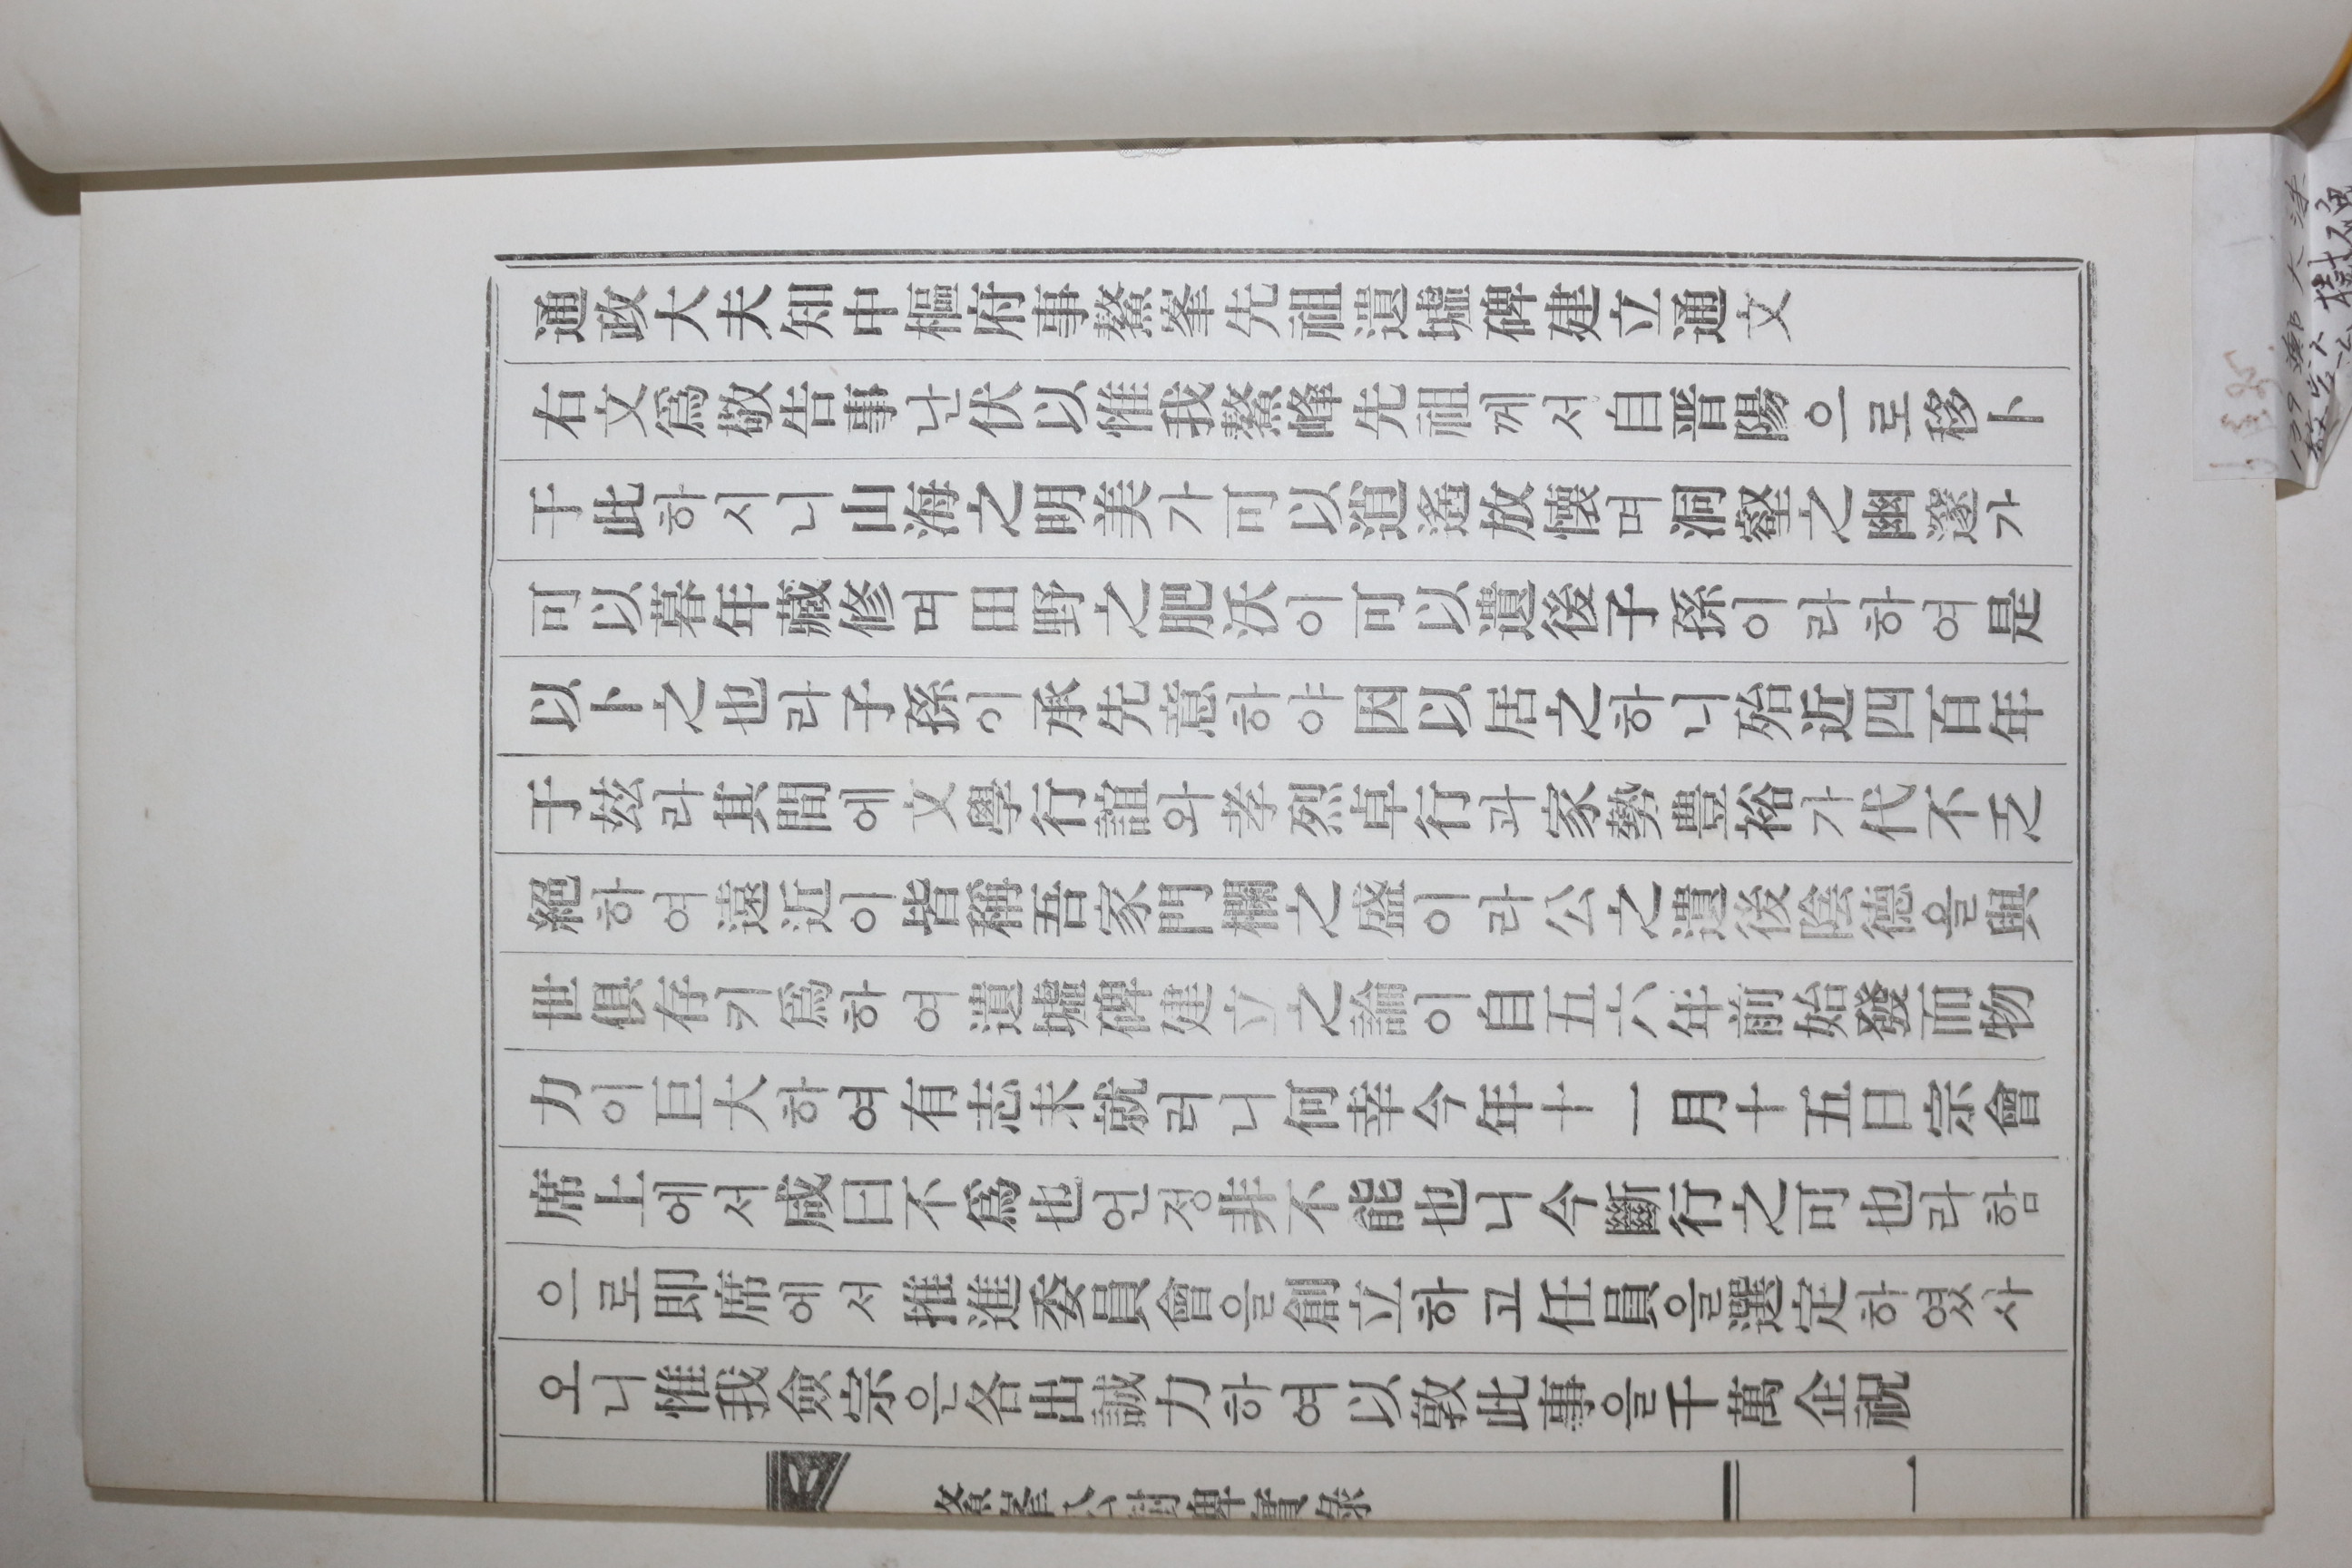 通政大夫知中樞府事鰲峯先祖遺墟碑建立通文
右文爲敬告事난伏以惟我鰲峰先祖께서自晋陽으로移卜
于此하시니山海之明美가可以逍遙放懷며洞壑之幽邃가
可以暮年藏修며田野之肥沃이可以遺後子孫이라하여是
以卜之也라子孫이承先意하야因以居之하니殆近四百年
于玆라其間에文學行誼와孝烈卓行과家勢豊裕가代不乏
絕하여遠近이皆稱吾家門欄之盛이라公之遺後陰德을與
世俱存키爲하여遺墟碑建立之論이自五六年前始發而物
力이巨大하여有志未就러니何幸今年十一月十五日宗會
席上에서咸曰不爲也언정非不能也니今斷行之可也라함
으로即席에서推進委員會을創立하고任員을選定하였사
오니惟我僉宗은各出誠力하여以敦此事을千萬企祝
鰲峯公竪碑實錄
一